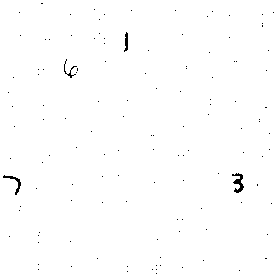 1
6
7 3